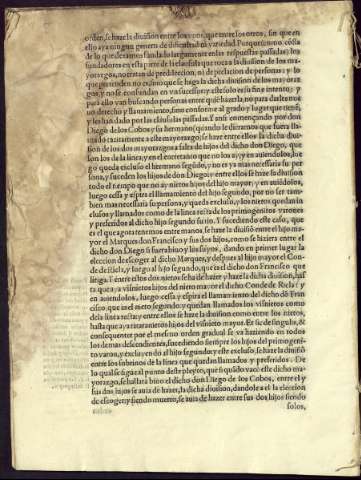 orden, se haze la diuision entre los vnos, que entre los otros, sin que en
ello aya ningun genero de dificultad ni variedad. Porque
de lo que dexamos fundado largamente en las respuestas passadas: los
fundadores en esta parte de la clausula que toca a la diuision de los ma
yorazgos, no tratan de predileccion, ni de prelacion de personas: y lo
que pretenden no es sino que se haga la dicha diuision de los mayoraz
gos, y no se confundan en vn sucessor, y este solo es su fin e intento; y
para ello van buscando personas entre quiē hazerla, no para darles nue
uo derecho y llamamiento, sino conforme al grado y lugar que tienē,
y les han dado por las clausulas passadas. Y ansi començando por don
Diego de los Cobos y su hermano (quando le dieramos que fuera lla
mado tacitamente a este mayorazgo) se haze entre ellos la dicha diui-
sion de los dos mayorazgos a falta de hijos del dicho don Diego, que
son los de la linea, y en el entretanto que no los ay, y en auiendolos, lue
go queda excluso el hermano segūdo, que es ya mas necessaria su per
sona, y suceden los hijos de Diego: y entre ellos se haze su diuision
todo el tiempo que no ay nietos del hijo mayor: y en auiēdolos,
luego cessa y espira el llamamiento del hijo segundo, por no ser tam-
bien mas necessaria su persona, y queda excluso, y los nietos quedan in
clusos y llamados como de la linea recta de los primogenitos varones
y preferidos al dicho hijo segundo suyo. Y sucediendo este caso, que
es el que agora tenemos entre manos, se haze la diuisiō entre el hijo ma
yor el Marques don Francisco y sus dos hijos, como se hiziera entre el
dicho don Diego si fuera biuo y los suyos, dando en primer lugar la
eleccion de escoger al dicho Marques, y despues al hijo mayor el Con-
de de Ricla, y luego al segundo, que es el dicho don Francisco que
litiga. Y entre estos dos nietos se ha de hazer y haze la dicha diuision, hasta
que aya visnietos hijos del nieto mayor el dicho Conde de Ricla: y
en auiendolos, luego cessa y espira el llamamiento del dicho dō Fran
cisco, que es el nieto segundo: y quedan llamados los visnietos como
de la linea recta: y entre ellos se haze la diuision como entre los nietos,
hasta que aya tataranietos hijos del visnieto mayor. Et sic de singulis, &
consequenter por el mesmo orden gradual se va haziendo en todos
los demas descendientes, sucediendo siempre los hijos del primogeni-
to varon, y excluyendo al hijo segundo; y este excluso, se haze la diuisiō
entre los sobrinos de la linea que quedan llamados y preferidos. De
lo qual se sigue al punto deste pleyto, que si quādo vacò este dicho ma
yorazgo, se hallara biuo el dicho don Diego de los Cobos, entre el y
sus dos hijos se auia de hazer la diuision, dandole a el la eleccion
de escoger: y siendo muerto, se auia de hazer entre sus dos hijos siendo
solos,